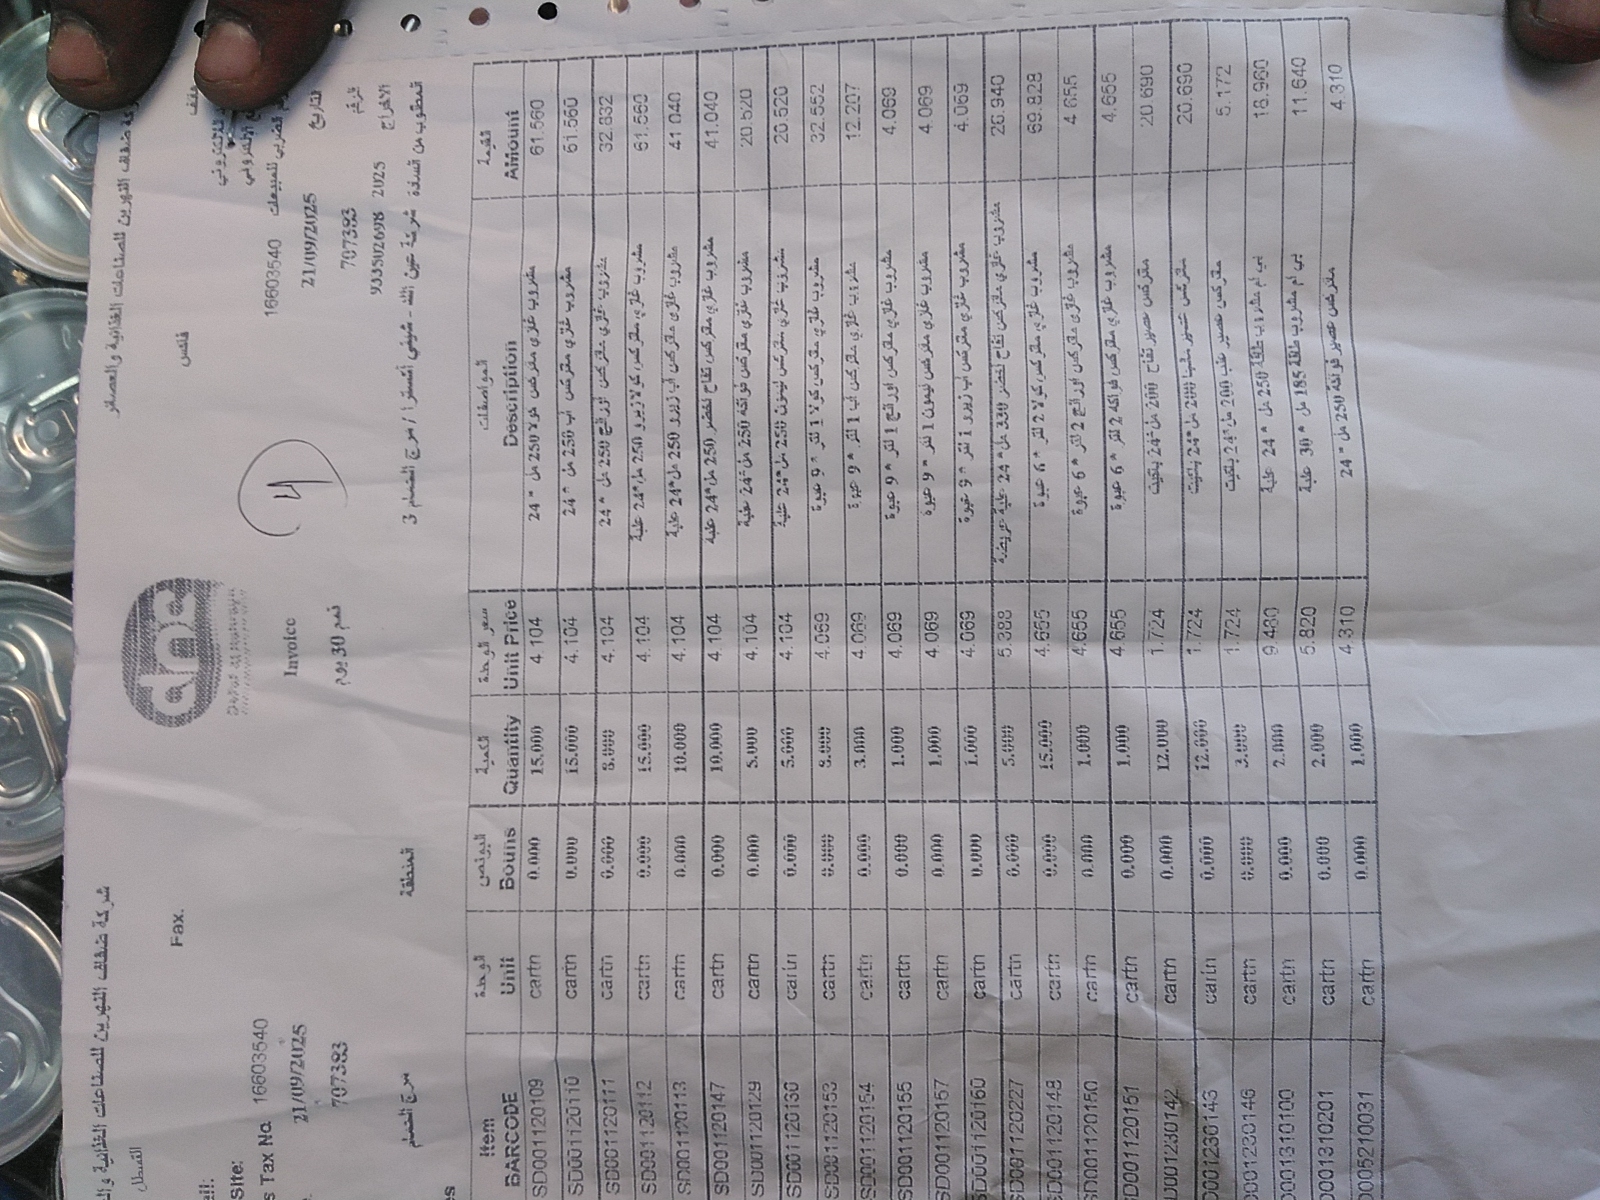 شركة ضفاف النهرين للصناعات الغذائية و
ضفاف النهرين للصناعات الغذائية والعصائر
القسطل
Fax.
فاكس
Site:
s Tax No 16603540
16603540 المبيعات
21/09/2025
Invoice
21/09/2025
التاريخ
707383
نعم 30 يوم
707383
الرقم
935502698 2025
الافراج
مرج الحمام
المنطقة
المطلوب من السادة شركة عين الله - شيني اكسترا / مرج الحمام 3
4
Item الوحدة البونص الكمية سعر الوحدة المواصفات القيمة
BARCODE Unit Bouns Quantity Unit Price Description Amount
SD001120109 cartn 0.000 15.000 4.104 مشروب غازي مفركس كولا 250 مل * 24 61.560
SD001120110 cartn 0.000 15.000 4.104 مشروب غازي مفركس اب 250 مل * 24 61.560
SD001120111 cartn 0.000 8.000 4.104 مشروب غازي مفركس اورانج 250 مل * 24 32.832
SD001120112 cartn 0.000 15.000 4.104 مشروب غازي مفركس كولا زيرو 250 مل*24 علبة 61.560
SD001120113 cartn 0.000 10.000 4.104 مشروب غازي مفركس اب زيرو 250 مل*24 علبة 41.040
SD001120147 cartn 0.000 10.000 4.104 مشروب غازي مفركس تفاح اخضر 250 مل*24 علبة 41.040
SD001120129 cartn 0.000 5.000 4.104 مشروب غازي مفركس فواكه 250 مل*24 علبة 20.520
SD001120130 cartn 0.000 5.000 4.104 مشروب غازي مفركس ليمون 250 مل*24 علبة 20.520
SD001120153 cartn 0.000 8.000 4.069 مشروب غازي مفركس كولا 1 لتر * 9 عبوة 32.552
SD001120154 cartn 0.000 3.000 4.069 مشروب غازي مفركس اب 1 لتر * 9 عبوة 12.207
SD001120155 cartn 0.000 1.000 4.069 مشروب غازي مفركس اورانج 1 لتر * 9 عبوة 4.069
SD001120157 cartn 0.000 1.000 4.069 مشروب غازي مفركس ليمون 1 لتر * 9 عبوة 4.069
SD001120160 cartn 0.000 1.000 4.069 مشروب غازي مفركس اب زيرو 1 لتر * 9 عبوة 4.069
SD001120227 cartn 0.000 5.000 5.388 مشروب غازي مفركس تفاح اخضر 330 مل * 24 علبة عريضة 26.940
SD001120148 cartn 0.000 15.000 4.655 مشروب غازي مفركس كولا 2 لتر * 6 عبوة 69.828
SD001120150 cartn 0.000 1.000 4.655 مشروب غازي مفركس اورانج 2 لتر * 6 عبوة 4.655
SD001120151 cartn 0.000 1.000 4.655 مشروب غازي مفركس فواكه 2 لتر * 6 عبوة 4.655
D001230142 cartn 0.000 12.000 1.724 مفركس عصير تفاح 200 مل*24 باكيت 20.690
D001230143 cartn 0.000 12.000 1.724 مفركس عصير 200 مل*24 باكيت 20.690
D001230146 cartn 0.000 3.000 1.724 مفركس عصير عنب 200 مل*24 باكيت 5.172
D001310100 cartn 0.000 2.000 9.480 بي ام مشروب طاقة 250 مل * 24 علبة 18.960
D001310201 cartn 0.000 2.000 5.820 بي ام مشروب طاقة 185 مل * 30 علبة 11.640
D005210031 cartn 0.000 1.000 4.310 مفركس عصير فواكه 250 مل * 24 4.310